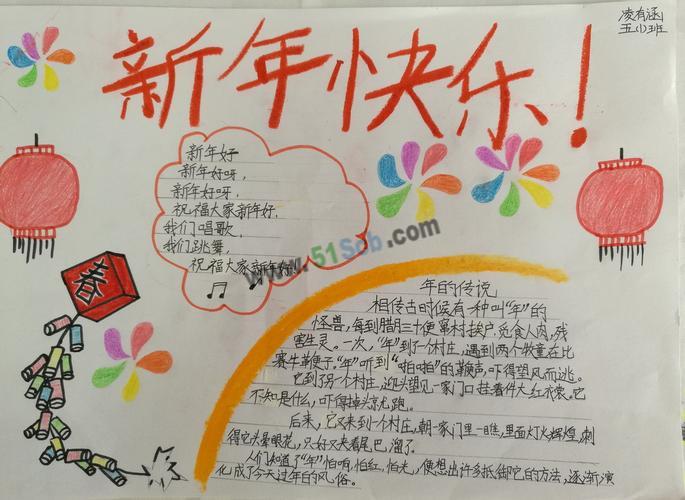 新年快乐!
凌有涵
五(1)班
新年好
新年好呀,
新年好呀,
祝福大家新年好.
我们唱歌,
我们跳舞,
祝福大家新年好!
www.51Scb.com
春
年的传说
相传古时候有一种叫“年”的
怪兽,每到腊月三十便窜村挨户,觅食人肉,残
害生灵。一次,“年”到了一个村庄,遇到两个牧童在比
赛牛革便子。“年”听到“啪啪”的革便声,吓得望风而逃。
它到了另一个村庄,迎头望见一家门口挂着件大红衣裳。它
不知是什么,吓得掉头就跑。
后来,它又来到一个村庄,朝一家门里一瞧,里面灯火辉煌,刺
得它头晕眼花,只好又夹着尾巴溜了。
人们知道了“年”怕响,怕红,怕光,便想出许多抵御它的方法,逐渐演
化成了今天过年的风俗。